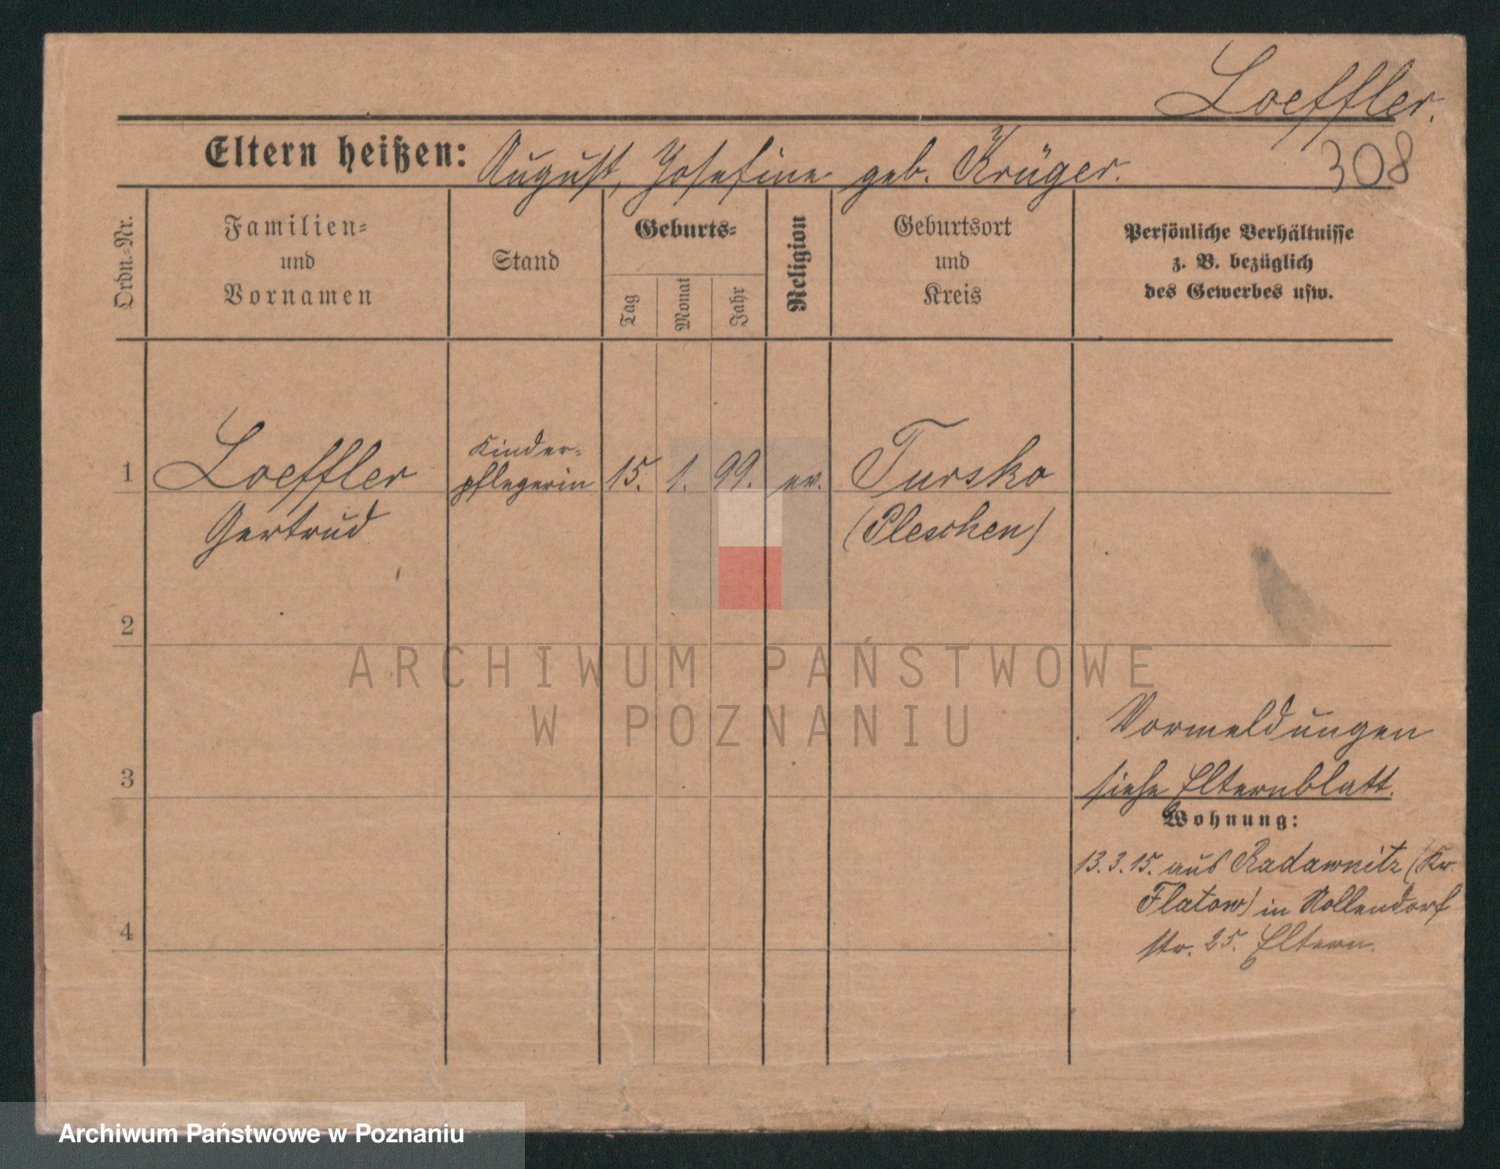 Loeffler.
308
Eltern heißen: August, Josefine geb. Krüger.
Ordn.-Nr.
Familien-
und
Vornamen
Stand
Geburts-
Tag
Monat
Jahr
Religion
Geburtsort
und
Kreis
Persönliche Verhältnisse
z. B. bezüglich
des Gewerbes usw.
1 Loeffler Kinder-
pflegerin 15. 1. 99. ev. Tursko
Gertrud (Pleschen)
2
ARCHIWUM PAŃSTWOWE
W POZNANIU
Vormeldungen
3 siehe Elternblatt.
Wohnung:
13.3.15. aus Radawnitz (Kr.
Flatow) in Nollendorf
4 str. 25. Eltern.
Archiwum Państwowe w Poznaniu